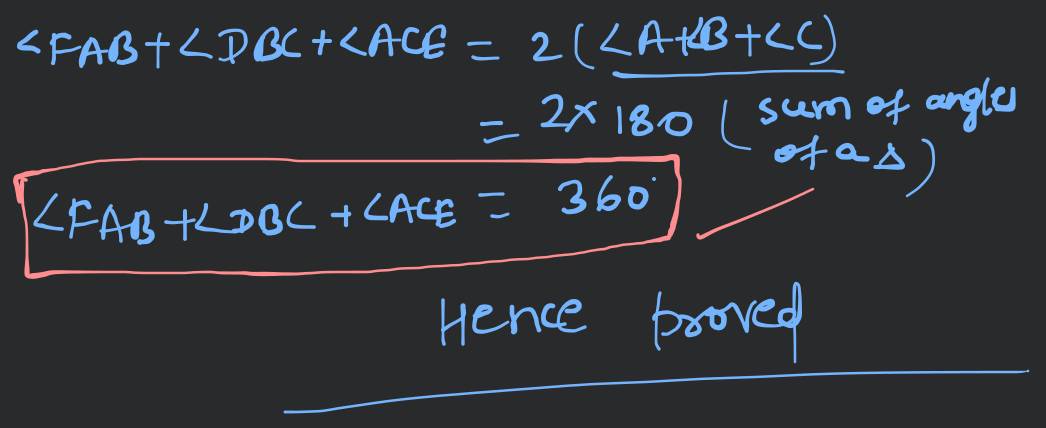 ∠FAB+∠DBC+∠ACE = 2(∠A+∠B+∠C)
= 2×180 (sum of angles
of a Δ)
∠FAB+∠DBC+∠ACE = 360°
Hence proved